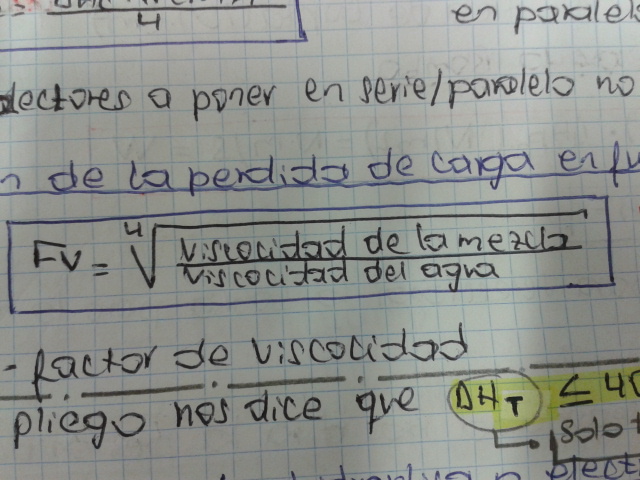 4
en paralelo
lectores a poner en serie/paralelo no
n de la perdida de carga en fu
Fv = ∜ viscocidad de la mezcla
viscocidad del agua
- factor de viscocidad
pliego nos dice que ΔH_T ≤ 40
solo